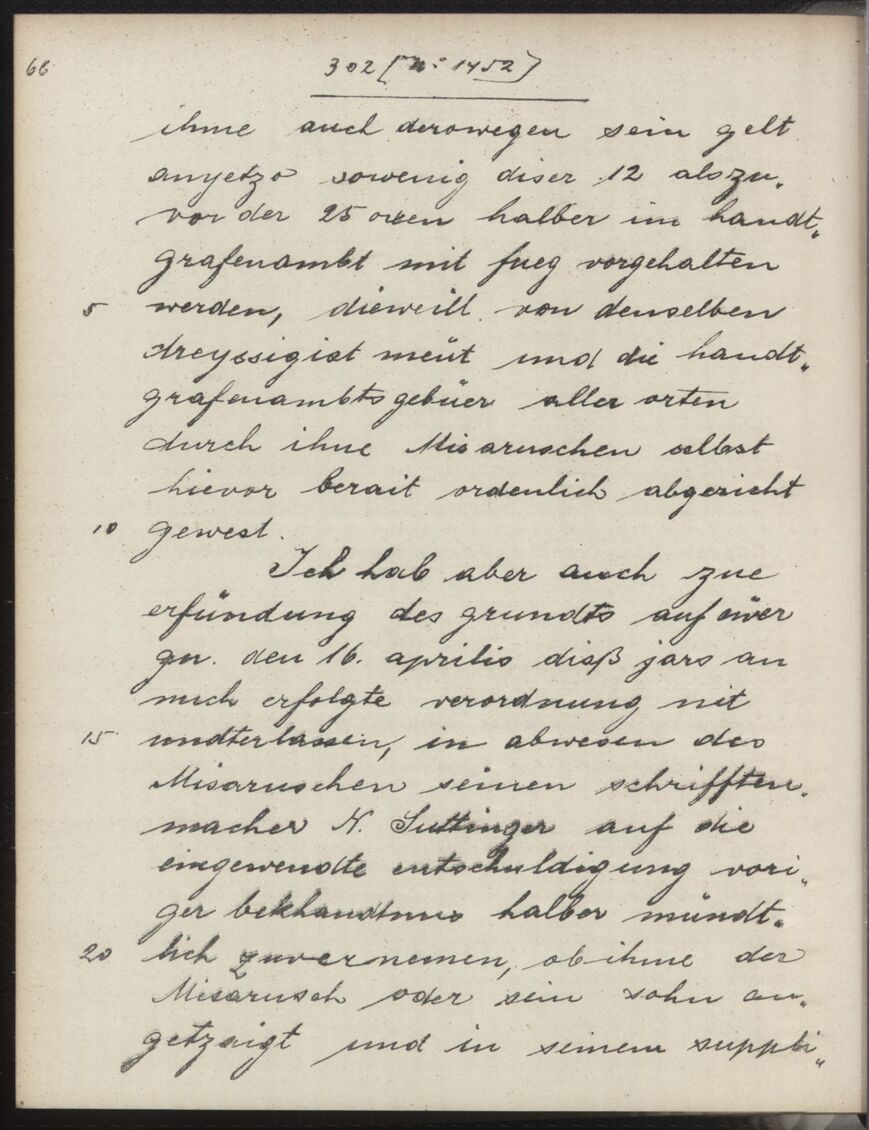 66
302 [No 1452]
ihme auch derowegen sein gelt
anyetzo sowenig diser 12 alszu„
vor der 25 oxen halber im handt„
grafenambt mit fueg vorgehalten
5 werden, dieweill von denselben
dreyssigist meüt und die handt„
grafenambtsgebüer aller orten
durch ihne Misaruschen selbst
hievor berait ordenlich abgericht
10 gewest.
Ich hab aber auch zue
erfündung des grundts auf eüer
gn. den 16. aprilis diß jars an
mich erfolgte verordnung nit
15 undterlassen, in abwesen des
Misaruschen seinen schrifften„
macher N. Suttinger auf die
eingewendte entschuldigung vori„
ger bekhandtnus halber mündt„
20 lich zuvernemen, ob ihme der
Misarusch oder sein sohn an„
getzaigt und in seinem suppli„